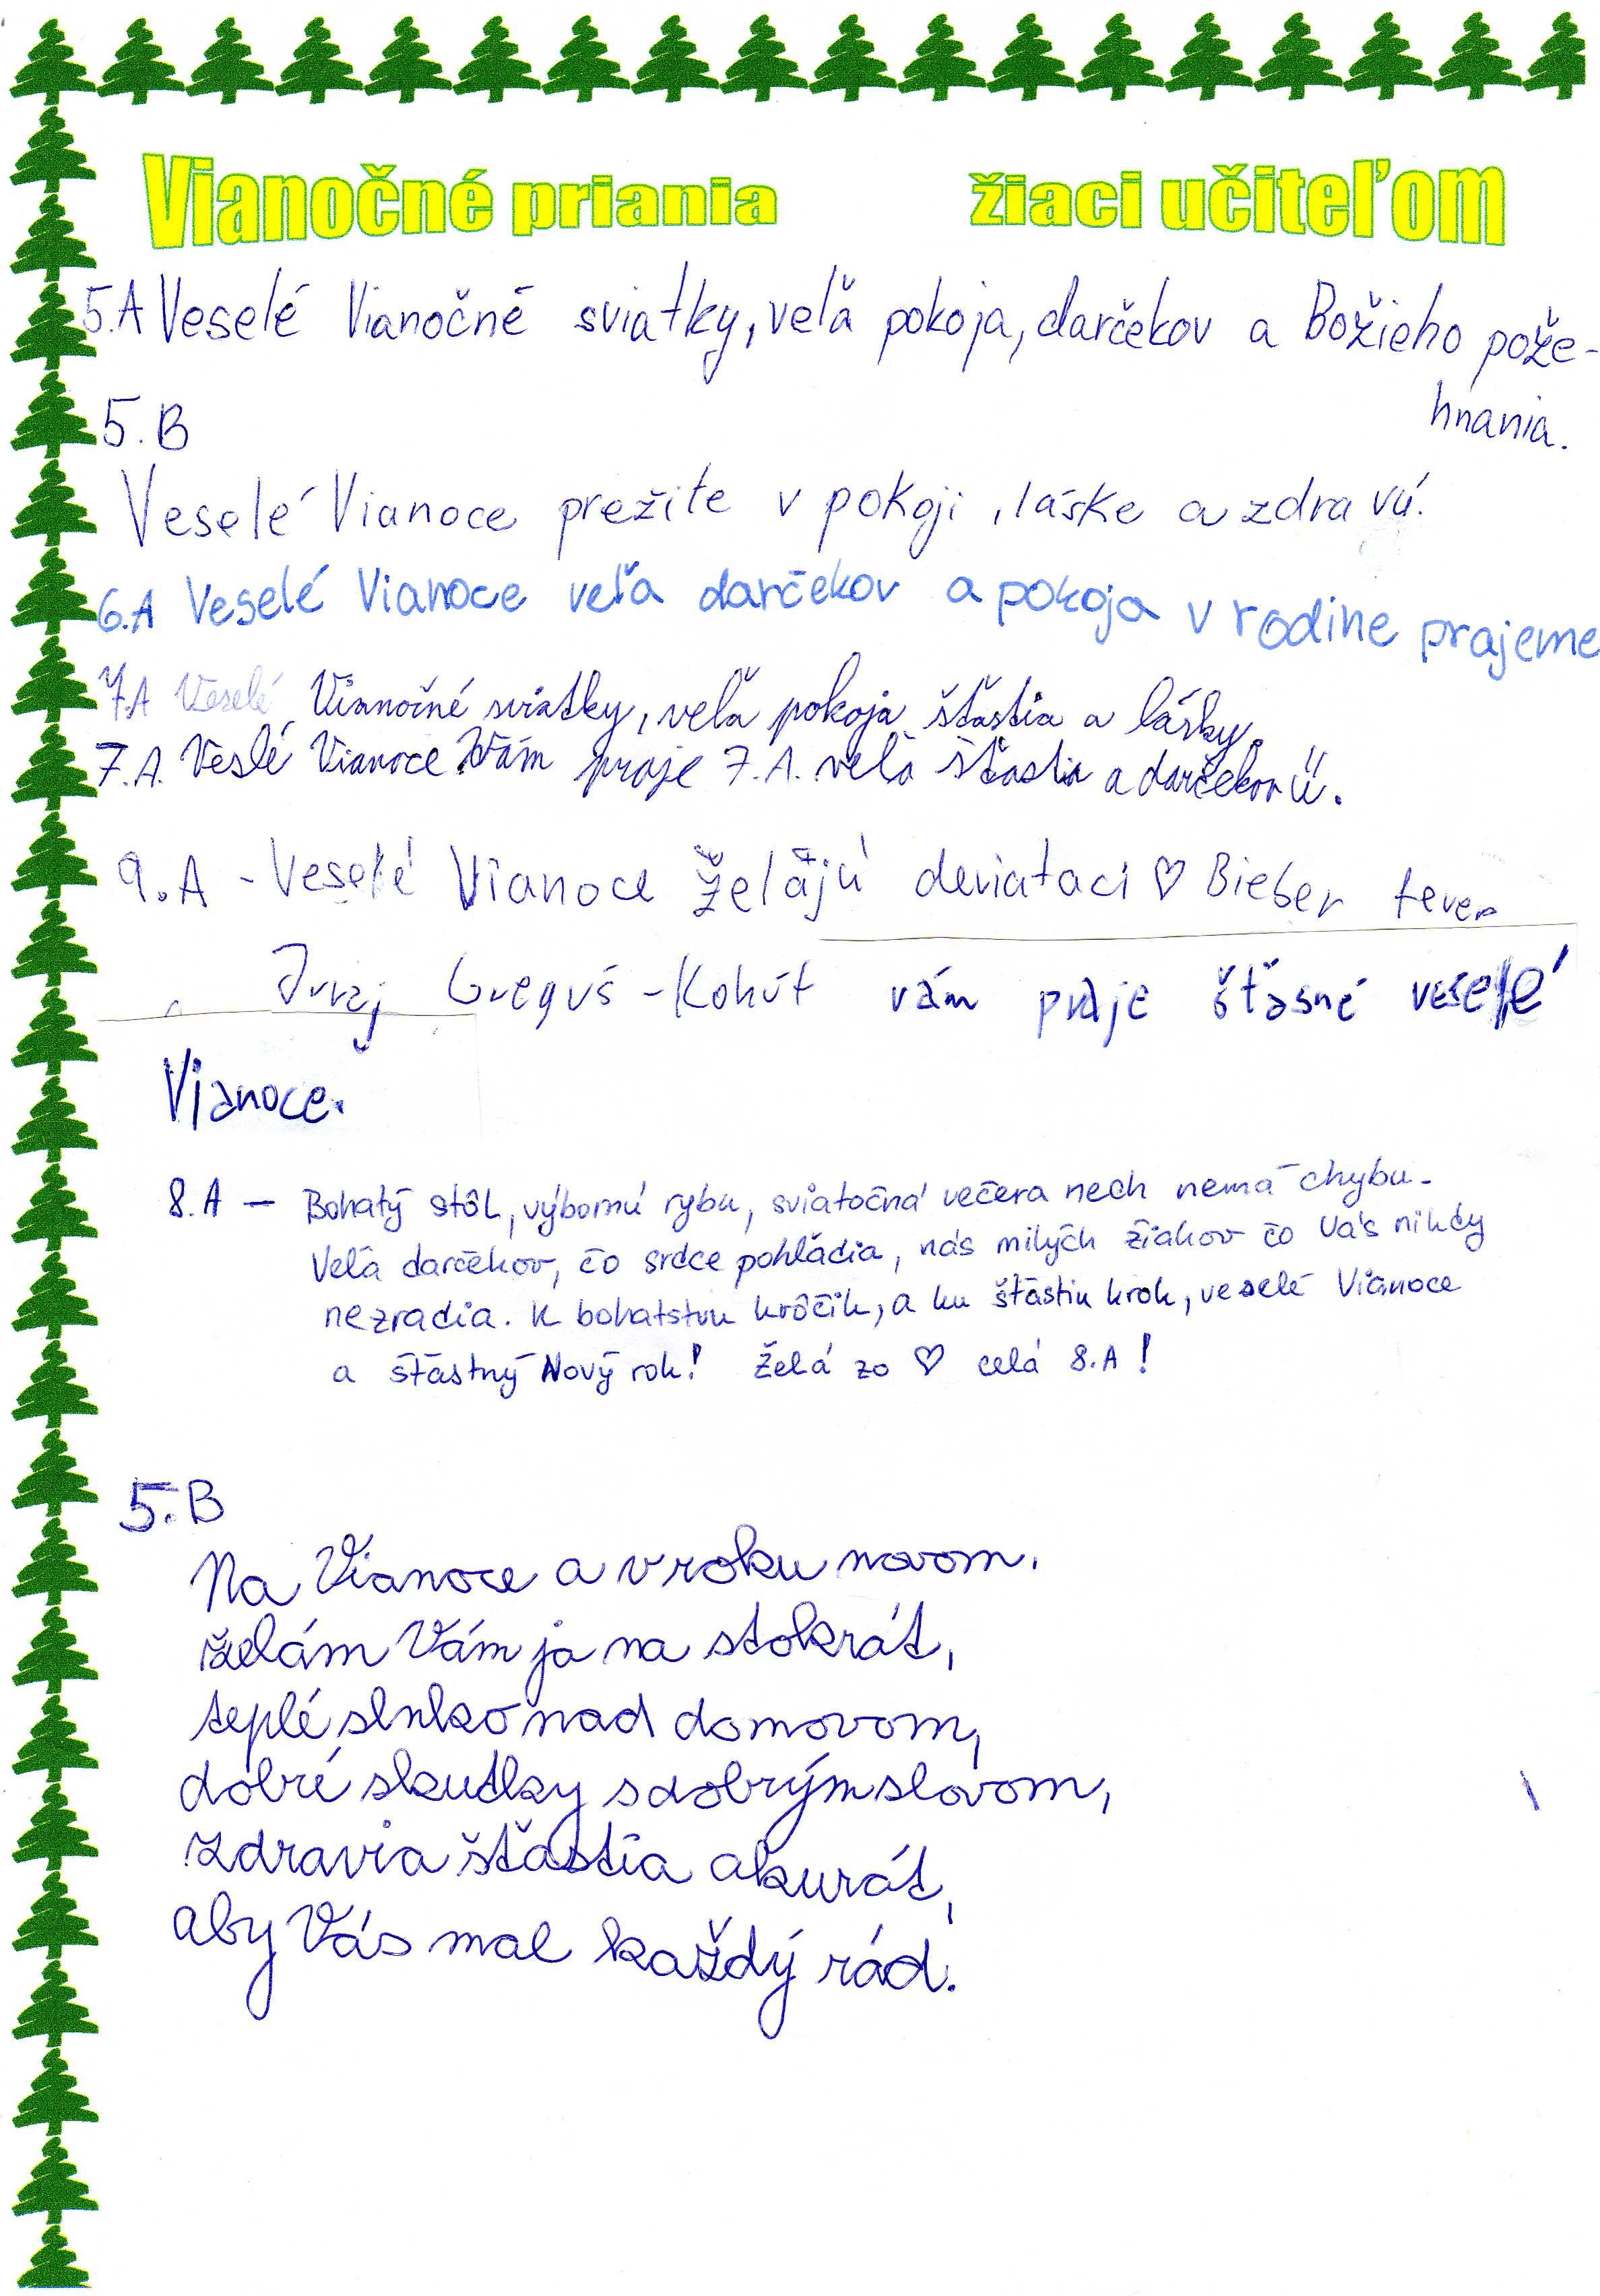 Vianočné priania žiaci učiteľom
5.A Veselé Vianočné sviatky, veľa pokoja, darčekov a Božieho pože-
hnania.
5.B
Veselé Vianoce prežite v pokoji, láske a zdraví.
6.A Veselé Vianoce veľa darčekov a pokoja v rodine prajeme
7.A Veselé Vianočné sviatky, veľa pokoja šťastia a lásky.
7.A. Veslé Vianoce Vám praje 7.A. veľa šťastia a darčekov Ü.
9.A - Veselé Vianoce želajú deviataci ♡ Bieber fever
Juraj Greguš - Kohút vám praje šťasné veselé
Vianoce.
8.A - Bohatý stôl, výbornú rybu, sviatočná večera nech nemá chybu.
Veľa darčekov, čo srdce pohladia, nás milých žiakov čo Vás nikdy
nezradia. K bohatstvu krôčik, a ku šťastiu krok, veselé Vianoce
a šťastný Nový rok! Želá zo ♡ celá 8.A!
5.B
Na Vianoce a v roku novom.
želám Vám ja na stokrát,
teplé slnko nad domovom,
dobré skutky s dobrým slovom,
zdravia šťastia akurát,
aby Vás mal každý rád.